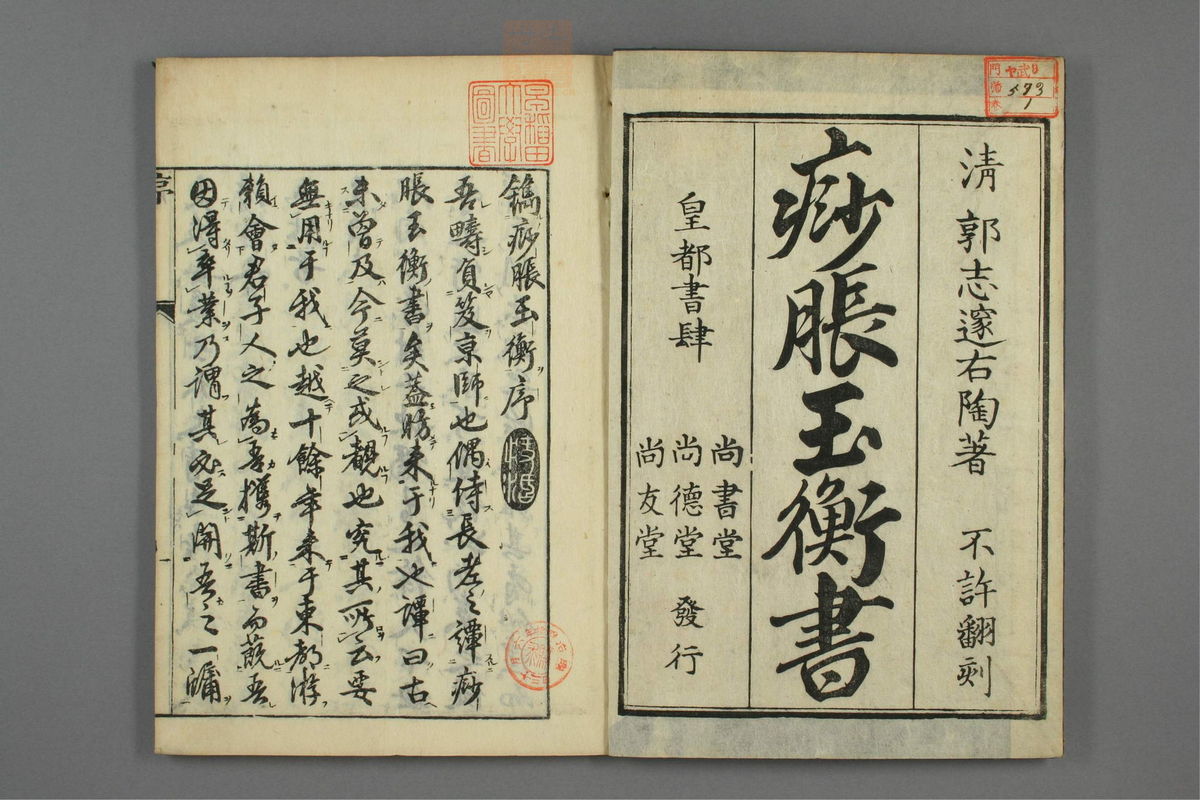 清 郭志邃右陶著 不許翻刻
痧脹玉衡書
皇都書肆
尚書堂
尚德堂
尚友堂
發行
鐫痧脹玉衡序
吾疇負笈京師也偶侍長老之譚痧
脹玉衡書矣蓋昉来于我也譚曰古
未曽及今莫之或覯也究其所云要
無用于我也越十餘年来于東都游
頼會君子人之為吾攜斯書而蔇吾
因得卒業乃謂其必足開吾之一牖
早稲田大學圖書